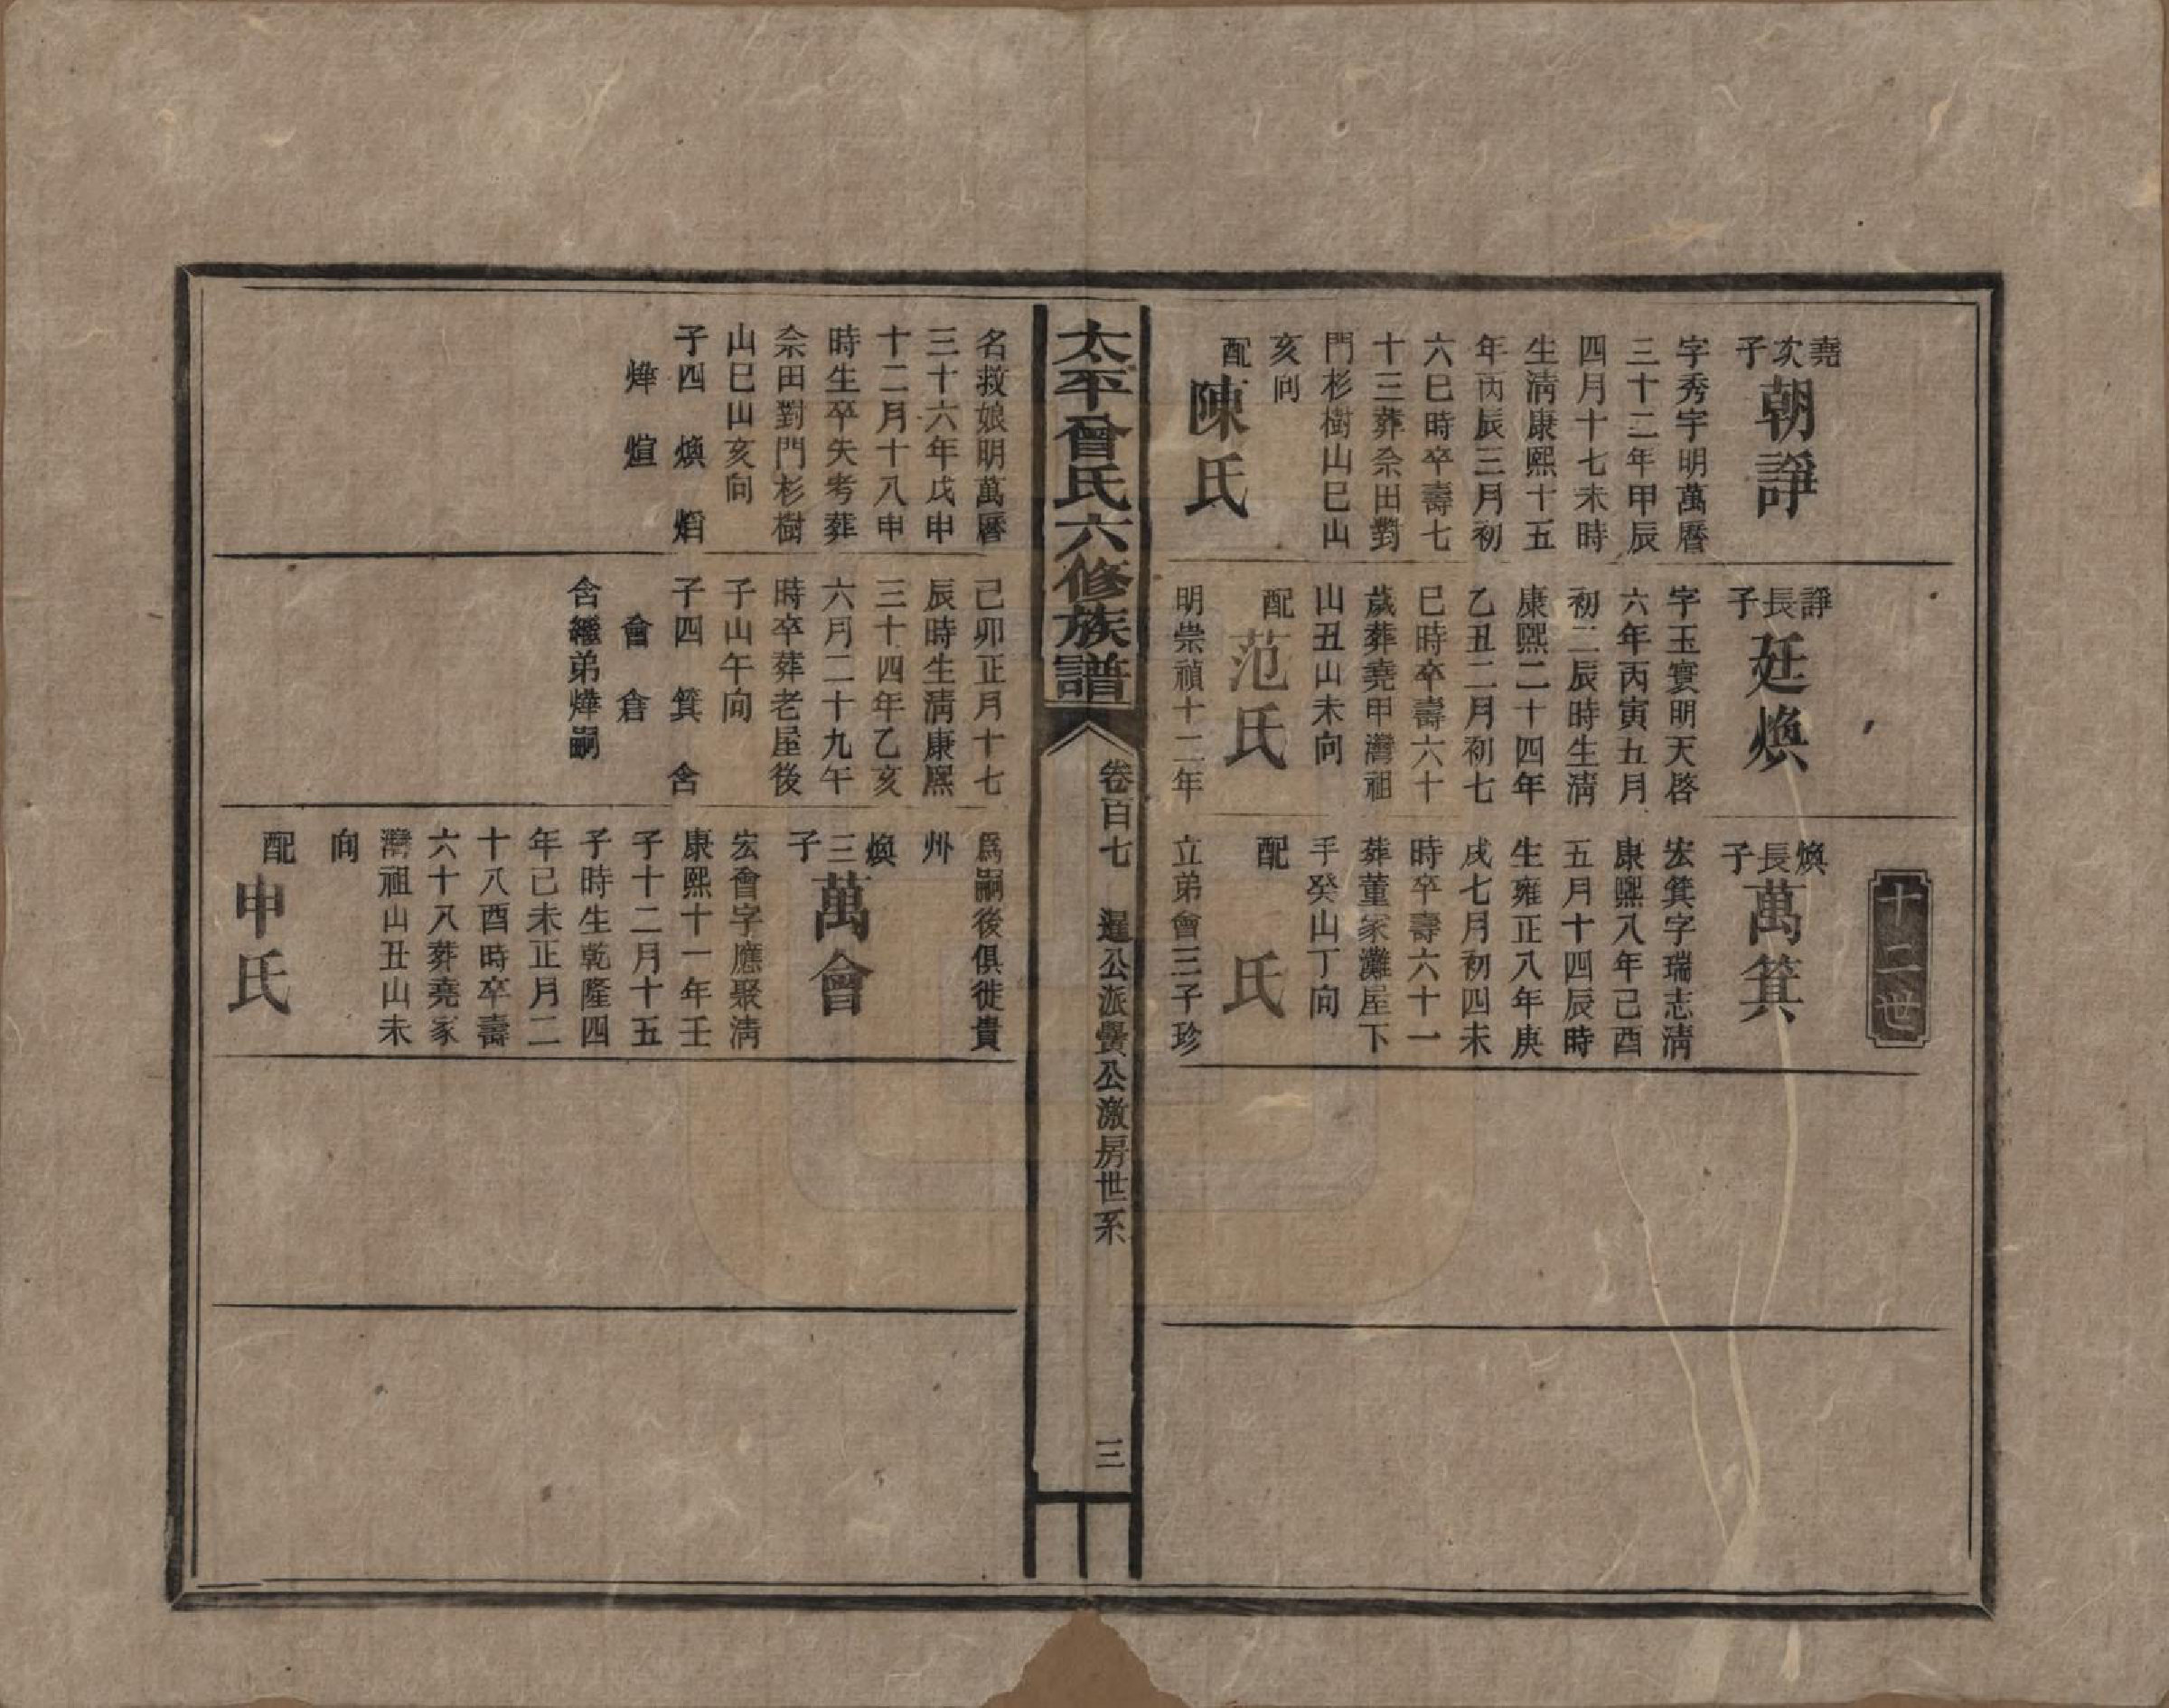 十二世
堯次子
朝諍
字秀宇明萬曆
三十二年甲辰
四月十七未時
生淸康熙十五
年丙辰三月初
六巳時卒壽七
十三葬佘田對
門杉樹山巳山
亥向
配
陳氏
諍長子
廷煥
字玉寰明天啓
六年丙寅五月
初二辰時生淸
康熙二十四年
乙丑二月初七
巳時卒壽六十
歲葬堯甲灣祖
山丑山未向
配
范氏
明崇禎十二年
煥長子
萬箕
宏箕字瑞志淸
康熙八年己酉
五月十四辰時
生雍正八年庚
戌七月初四未
時卒壽六十一
葬董家灘屋下
手癸山丁向
配
氏
立弟會三子珍
太平曾氏六修族譜
卷百七
暹公派譽公激房世系
三
名救娘明萬曆
三十六年戊申
十二月十八申
時生卒失考葬
佘田對門杉樹
山巳山亥向
子四 煥 熖
燁 煊
己卯正月十七
辰時生淸康熙
三十四年乙亥
六月二十九午
時卒葬老屋後
子山午向
子四 箕 含
會 倉
含繼弟燁嗣
爲嗣後俱徙貴
州
煥三子
萬會
宏會字應聚淸
康熙十一年壬
子十二月十五
子時生乾隆四
年己未正月二
十八酉時卒壽
六十八葬堯家
灣祖山丑山未
向
配
申氏